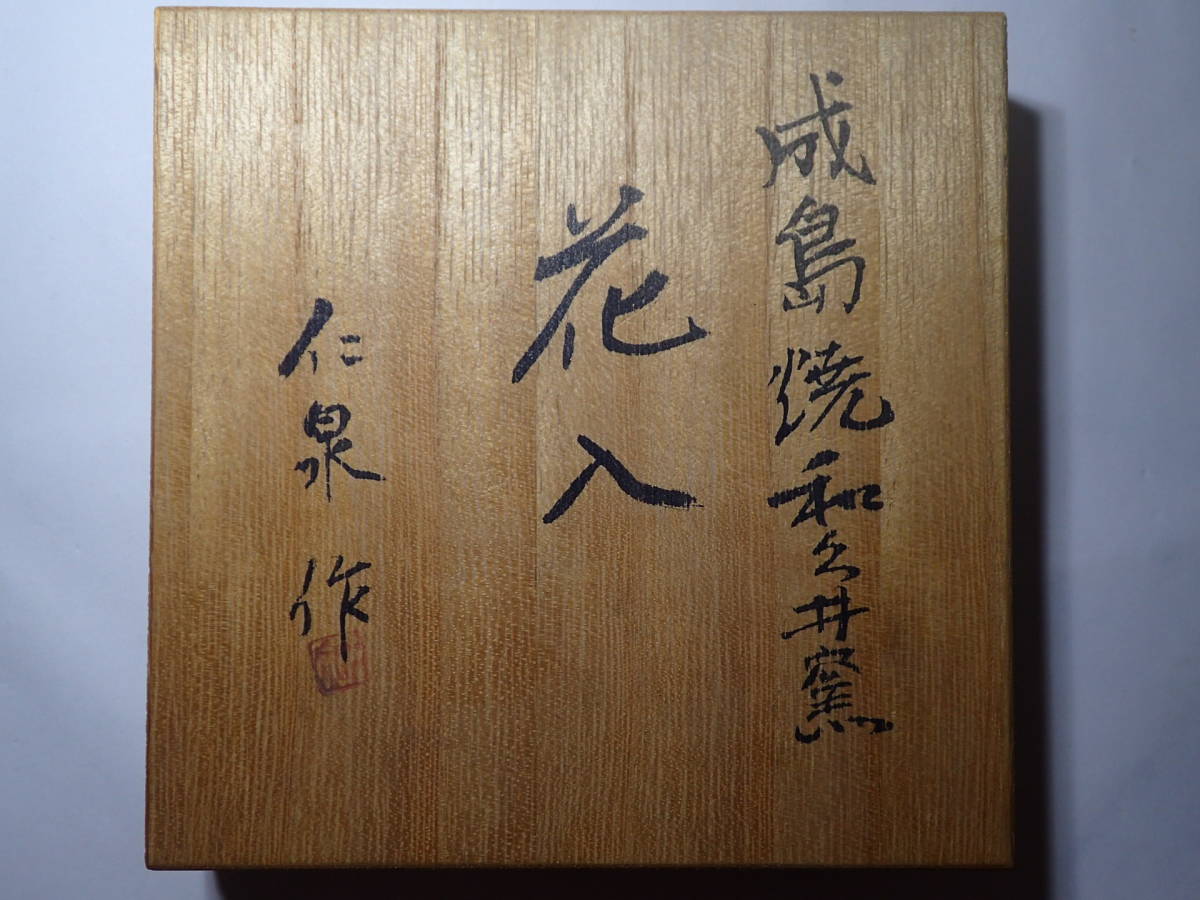 成島焼和久井窯
花入
仁泉作